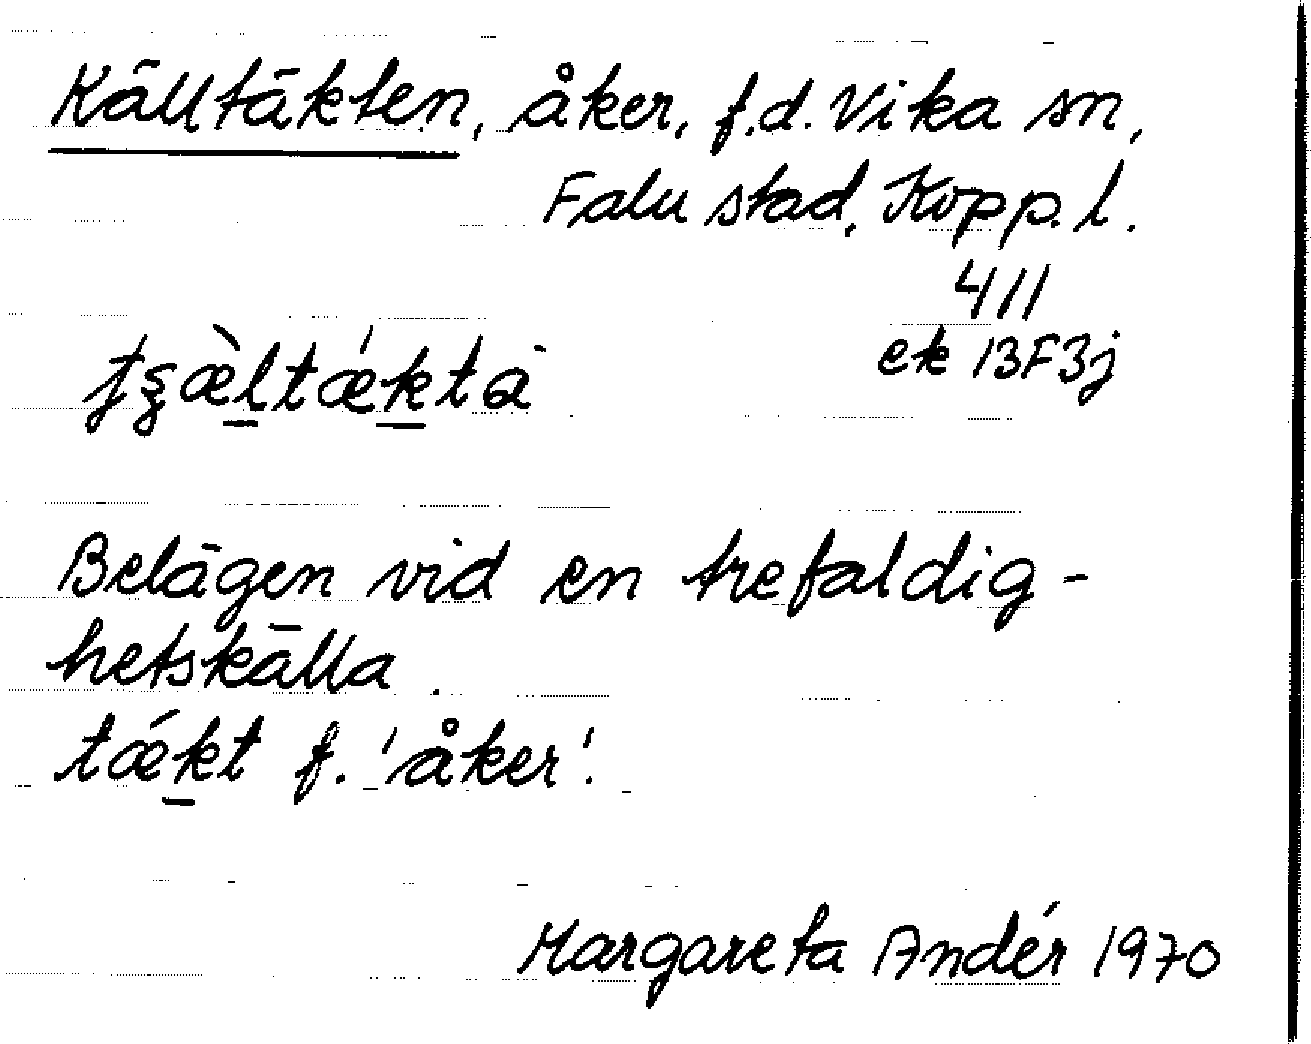 Källtäkten, åker, f.d. Vika sn,
Falu stad, Kopp. l.
411
ek 13F3j
Belägen vid en trefaldig-
hetskälla
tǽkt f. 'åker'.
Margareta Andér 1970